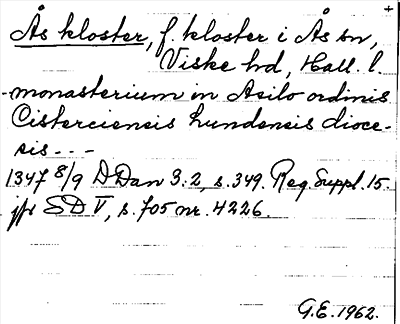 Ås kloster, f. kloster i Ås sn,
Viske hd, Hall. l.
monasterium in Asilo ordinis
Cisterciensis hundensis dioce-
sis - - -
1347 8/9 DDan 3:2, s. 349. Reg. Suppl. 15.
jfr SD V, s. 705 nr. 4226.
G.E. 1962.